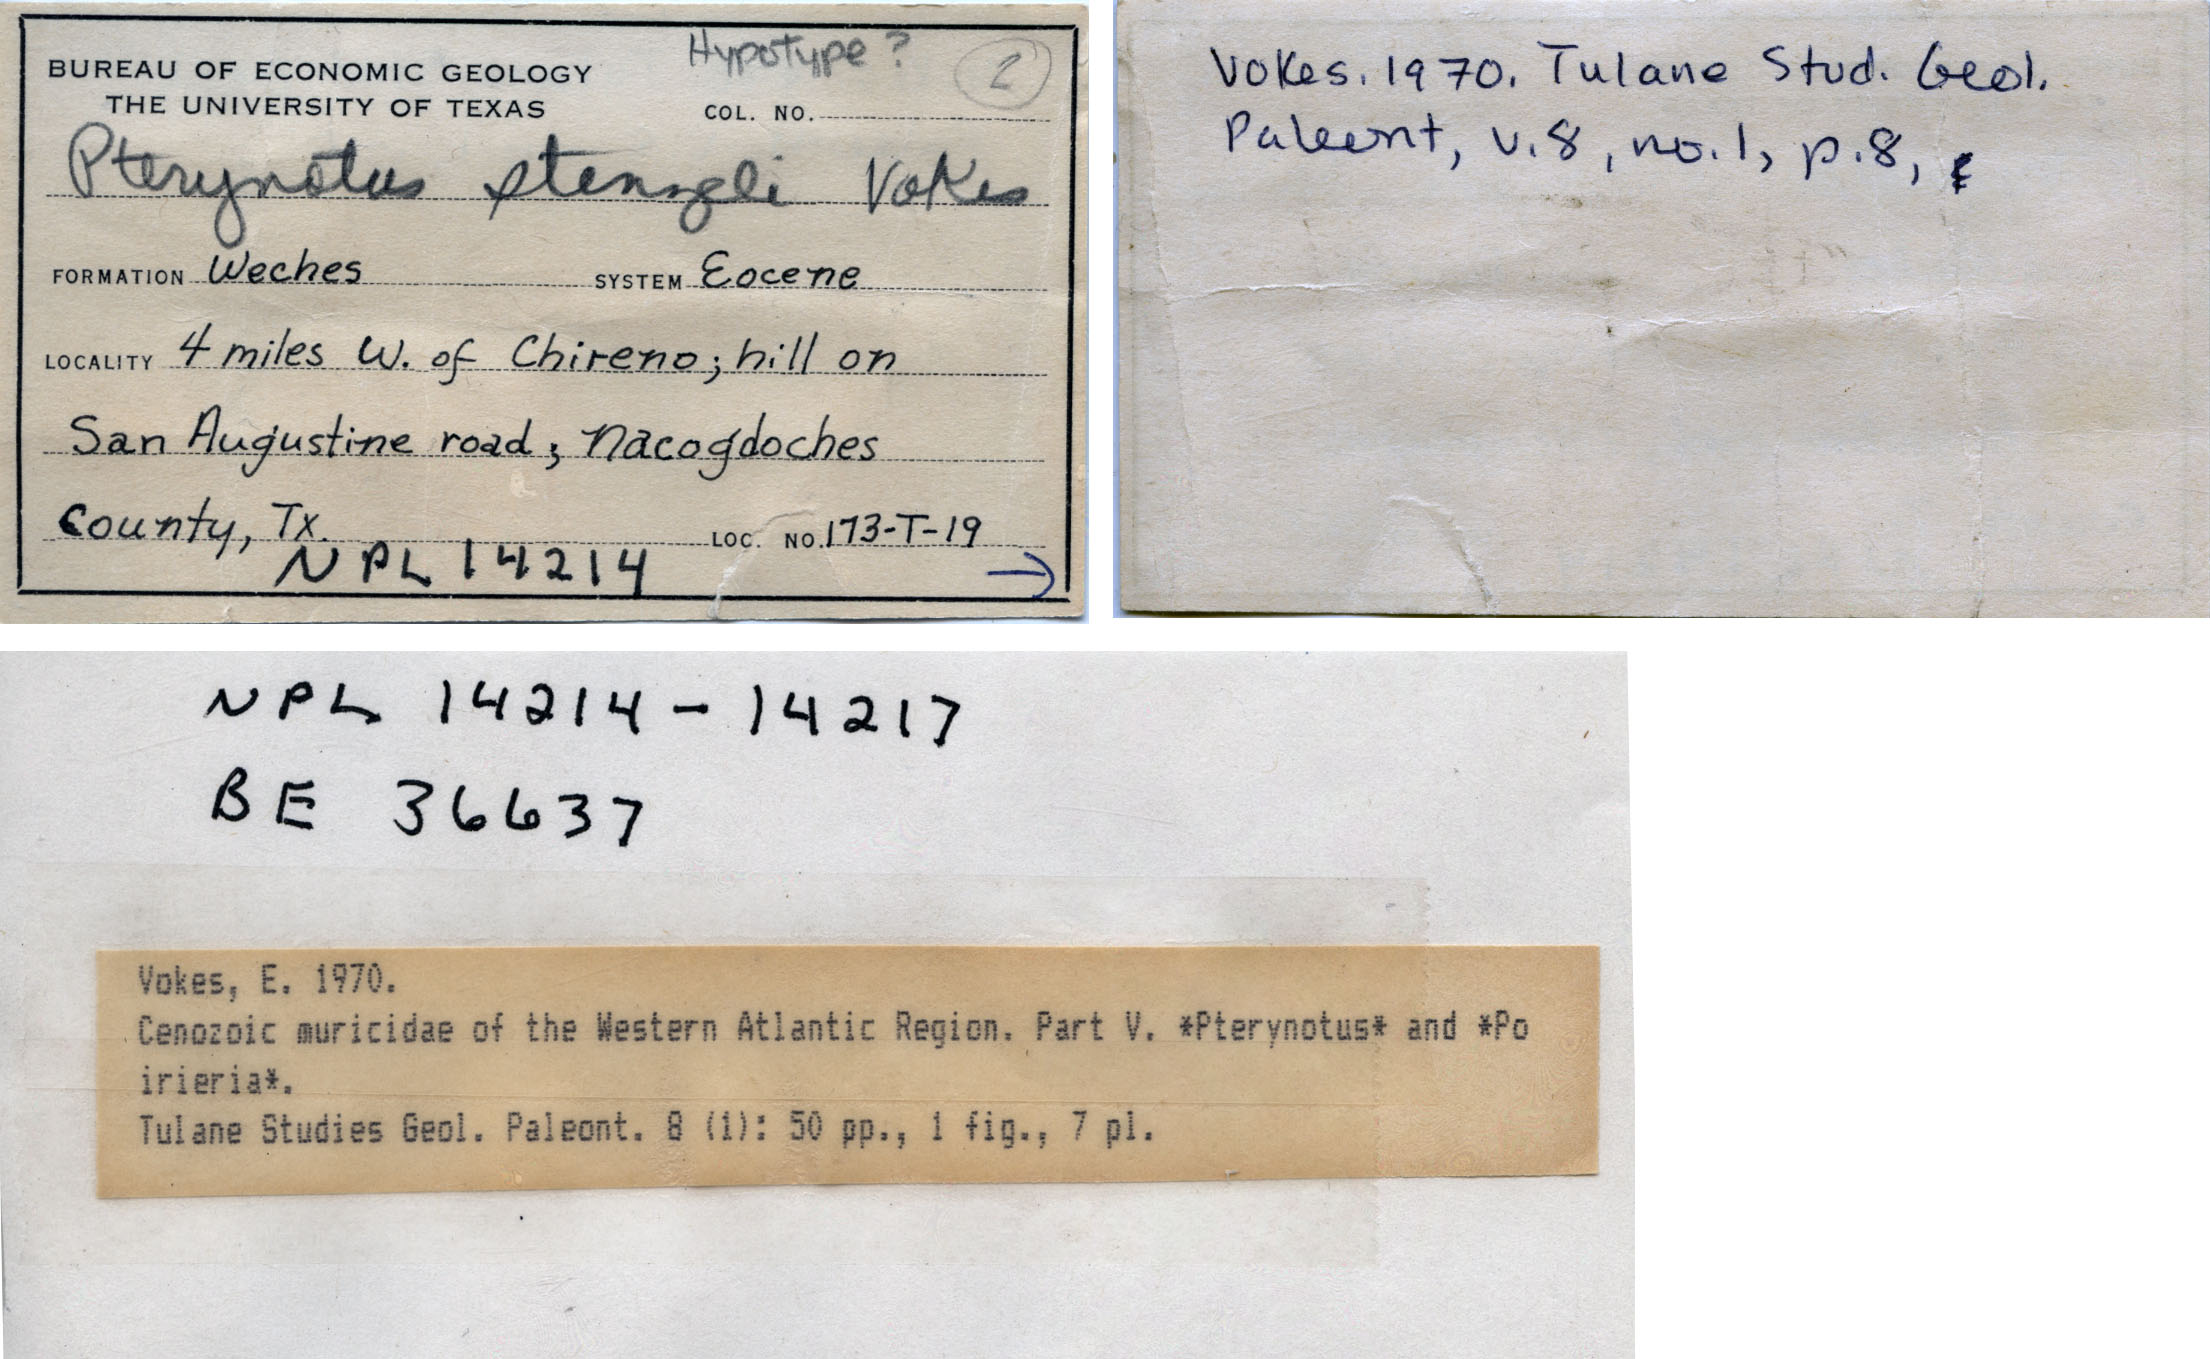 Hypotype? 2
BUREAU OF ECONOMIC GEOLOGY
THE UNIVERSITY OF TEXAS
COL. NO.
Pterynotus stenzeli Vokes
FORMATION Weches SYSTEM Eocene
LOCALITY 4 miles W. of Chireno; hill on
San Augustine road; Nacogdoches
County, Tx. LOC. NO. 173-T-19
NPL 14214 →
Vokes. 1970. Tulane Stud. Geol.
Paleont, v.8, no.1, p.8,
NPL 14214-14217
BE 36637
Vokes, E. 1970.
Cenozoic muricidae of the Western Atlantic Region. Part V. *Pterynotus* and *Po
irieria*.
Tulane Studies Geol. Paleont. 8 (1): 50 pp., 1 fig., 7 pl.